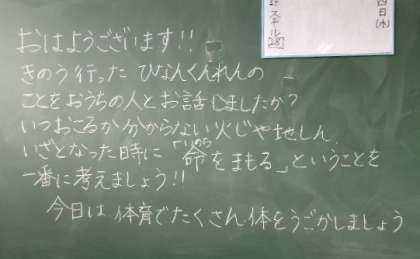 おはようございます!!
きのう行った ひなんくんれんの
ことをおうちの人とお話しましたか?
いつおこるか分からない火じや地しん
いざとなった時に「命をまもる」ということを
いのち
一番に考えましょう!!
今日は 体育でたくさん体をうごかしましょう
日(水)